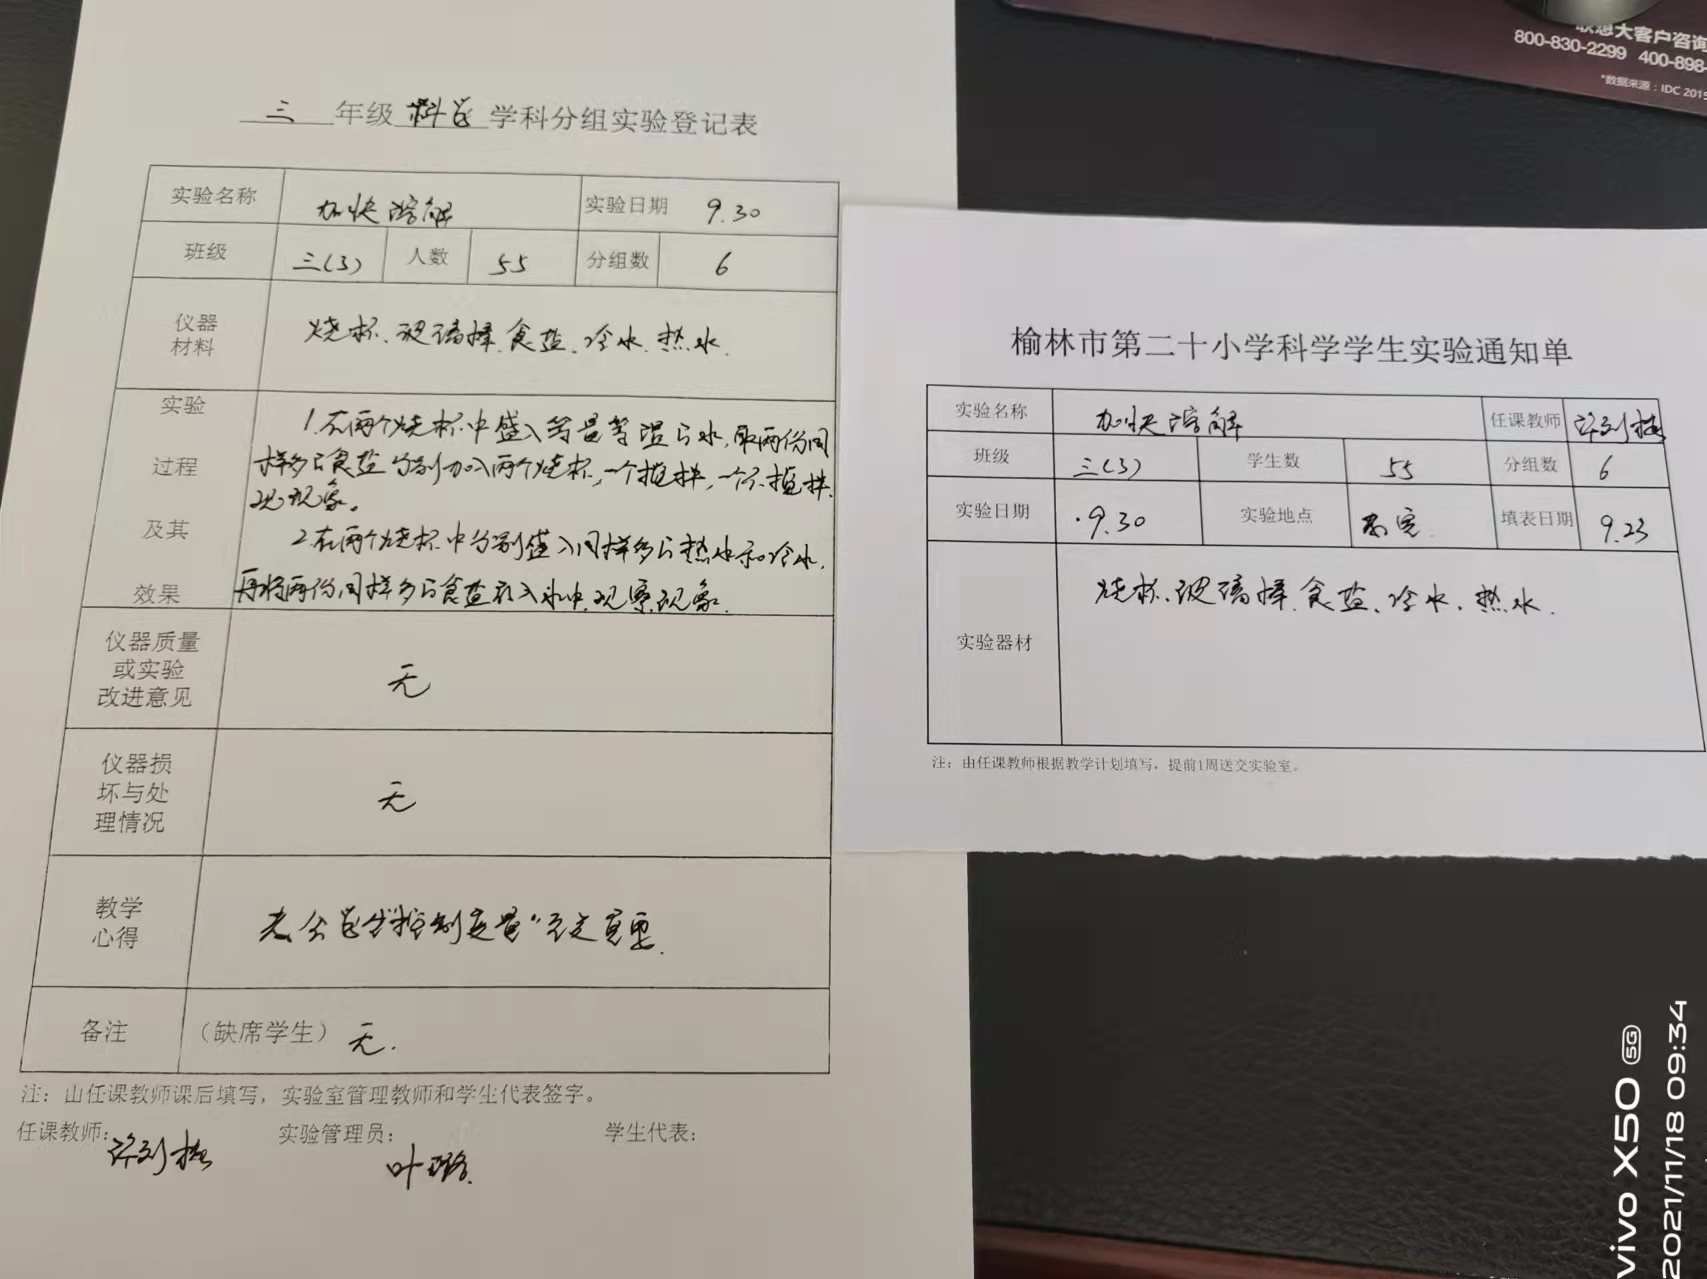 三 年级 科学 学科分组实验登记表
实验名称 加快溶解 实验日期 9.30
班级 三(3) 人数 55 分组数 6
仪器
材料
烧杯、玻璃棒、食盐、冷水、热水.
实验
过程
及其
效果
1.在两个烧杯中盛入等量等温的水,取两份同
样多的食盐分别加入两个烧杯,一个搅拌,一个不搅拌.
观现象。
2.在两个烧杯中分别盛入同样多的热水和冷水,
再将两份同样多的食盐放入水中,观察现象.
仪器质量
或实验
改进意见
无
仪器损
坏与处
理情况
无
教学
心得
学生"控制变量"
备注 (缺席学生) 无.
注:由任课教师课后填写,实验室管理教师和学生代表签字。
任课教师: 实验管理员: 学生代表:
叶璐
榆林市第二十小学科学学生实验通知单
实验名称 加快溶解 任课教师
班级 三(3) 学生数 55 分组数 6
实验日期 9.30 实验地点 填表日期 9.23
实验器材
烧杯、玻璃棒、食盐、冷水、热水.
注:由任课教师根据教学计划填写,提前1周送交实验室。
联想大客户咨询
800-830-2299 400-898-
*数据来源:IDC 2015
vivo X50 5G
2021/11/18 09:34